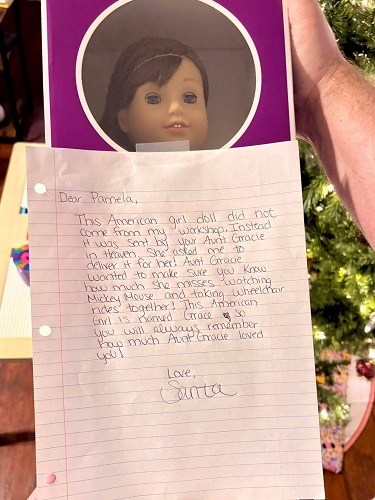 Dear Pamela,
This American girl doll did not
come from my workshop. Instead
it was sent by your Aunt Gracie
in Heaven. She asked me to
deliver it for her! Aunt Gracie
wanted to make sure you know
how much she misses watching
Mickey Mouse and taking wheelchair
rides together! This American
Girl is named Grace so
you will always remember
how much Aunt Gracie loved
you!
Love,
Santa